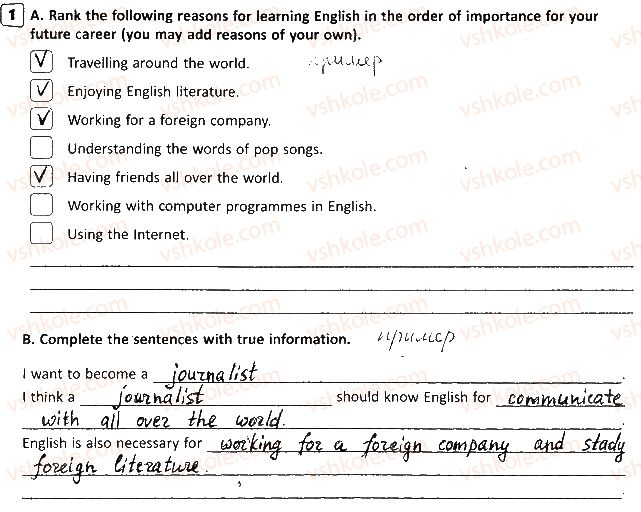 1 A. Rank the following reasons for learning English in the order of importance for your
future career (you may add reasons of your own).
V Travelling around the world. пример
V Enjoying English literature.
V Working for a foreign company.
Understanding the words of pop songs.
V Having friends all over the world.
Working with computer programmes in English.
Using the Internet.
B. Complete the sentences with true information. пример
I want to become a journalist
I think a journalist should know English for communicate
with all over the world.
English is also necessary for working for a foreign company and stady
foreign literature.
vshkole.com